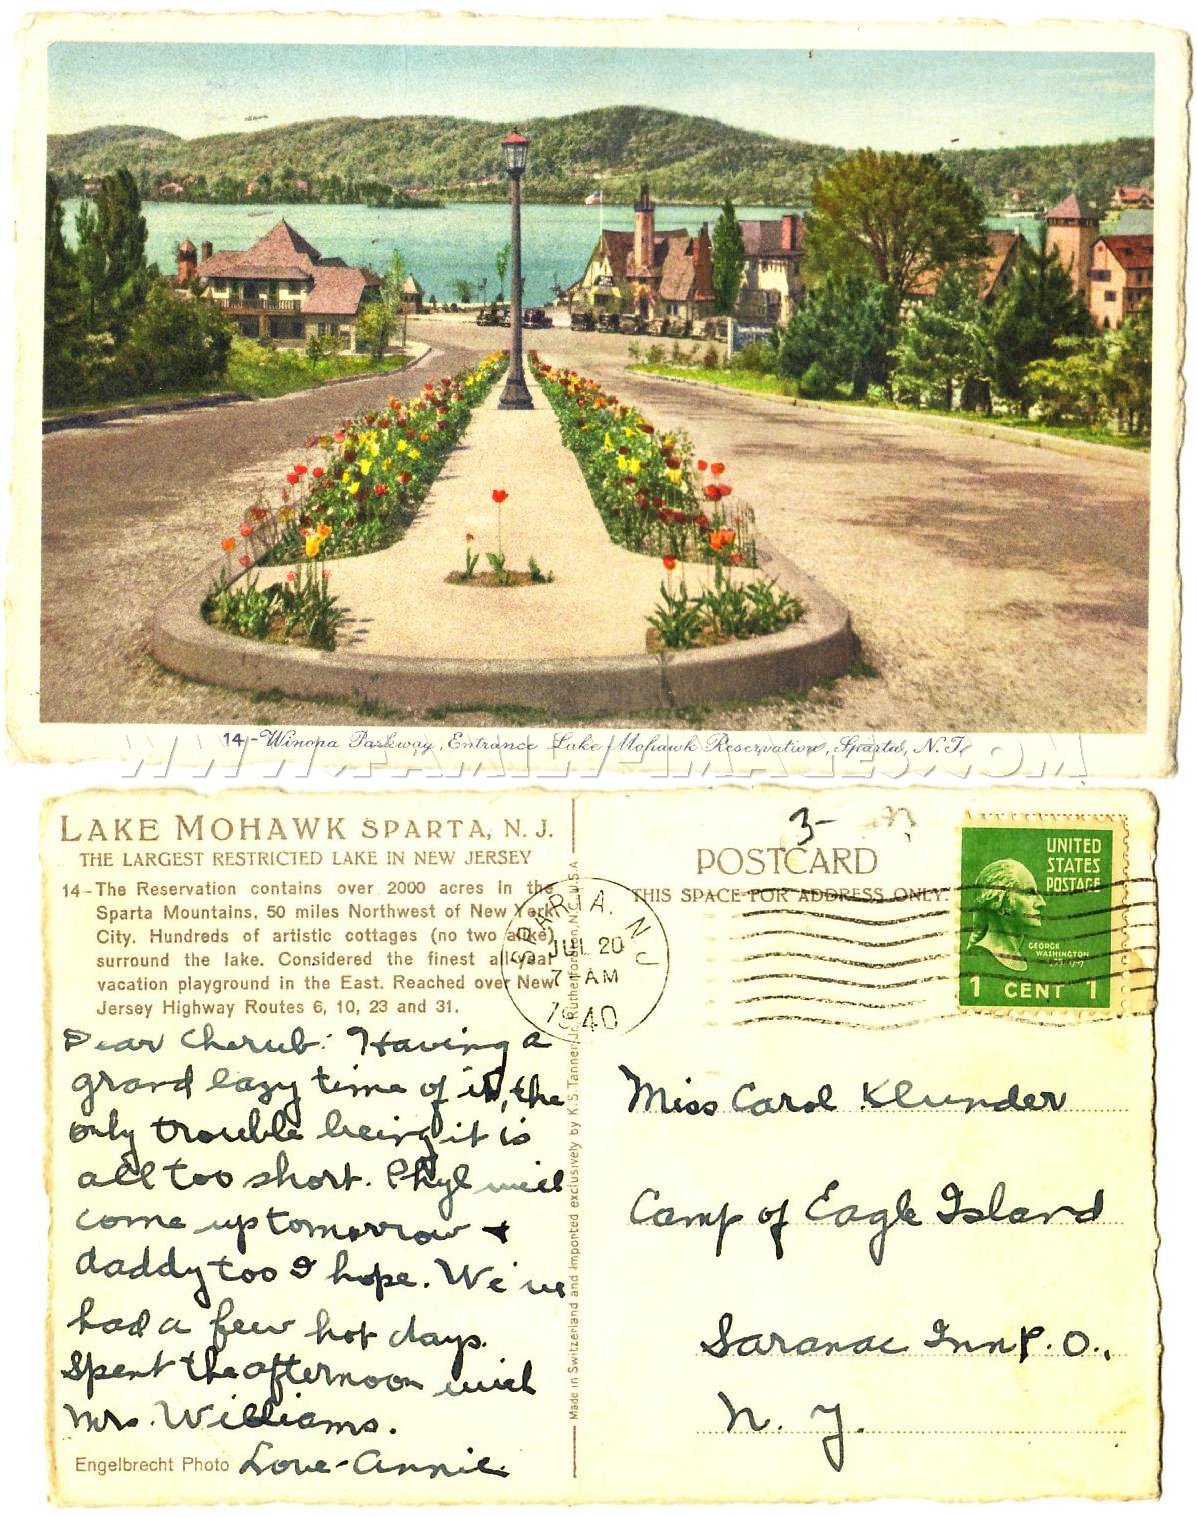 14-Winona Parkway, Entrance Lake Mohawk Reservation, Sparta, N.J.
WWW.FAMILY-IMAGES.COM
LAKE MOHAWK SPARTA, N. J.
THE LARGEST RESTRICTED LAKE IN NEW JERSEY
14-The Reservation contains over 2000 acres in the
Sparta Mountains, 50 miles Northwest of New York
City. Hundreds of artistic cottages (no two alike)
surround the lake. Considered the finest all-year
vacation playground in the East. Reached over New
Jersey Highway Routes 6, 10, 23 and 31.
Dear Cherub: Having a
grand lazy time of it, the
only trouble being it is
all too short. Phyl will
come up tomorrow +
daddy too I hope. We've
had a few hot days.
Spent the afternoon with
Mrs. Williams.
Love-Annie
Engelbrecht Photo
Made in Switzerland and imported exclusively by K.S. Tanner, Jr. Rutherford, N.J. U.S.A
SPARTA, N.J.
JUL 20
7 AM
1940
3-
POSTCARD
THIS SPACE FOR ADDRESS ONLY.
UNITED
STATES
POSTAGE
GEORGE
WASHINGTON
1 CENT 1
Miss Carol Klunder
Camp of Eagle Island
Saranac Inn P.O.,
N. Y.